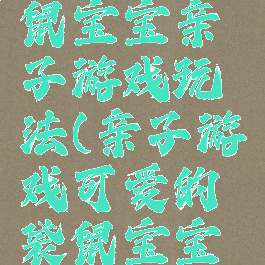 鼠宝宝亲
子游戏玩
法(亲子游
戏可爱的
袋鼠宝宝